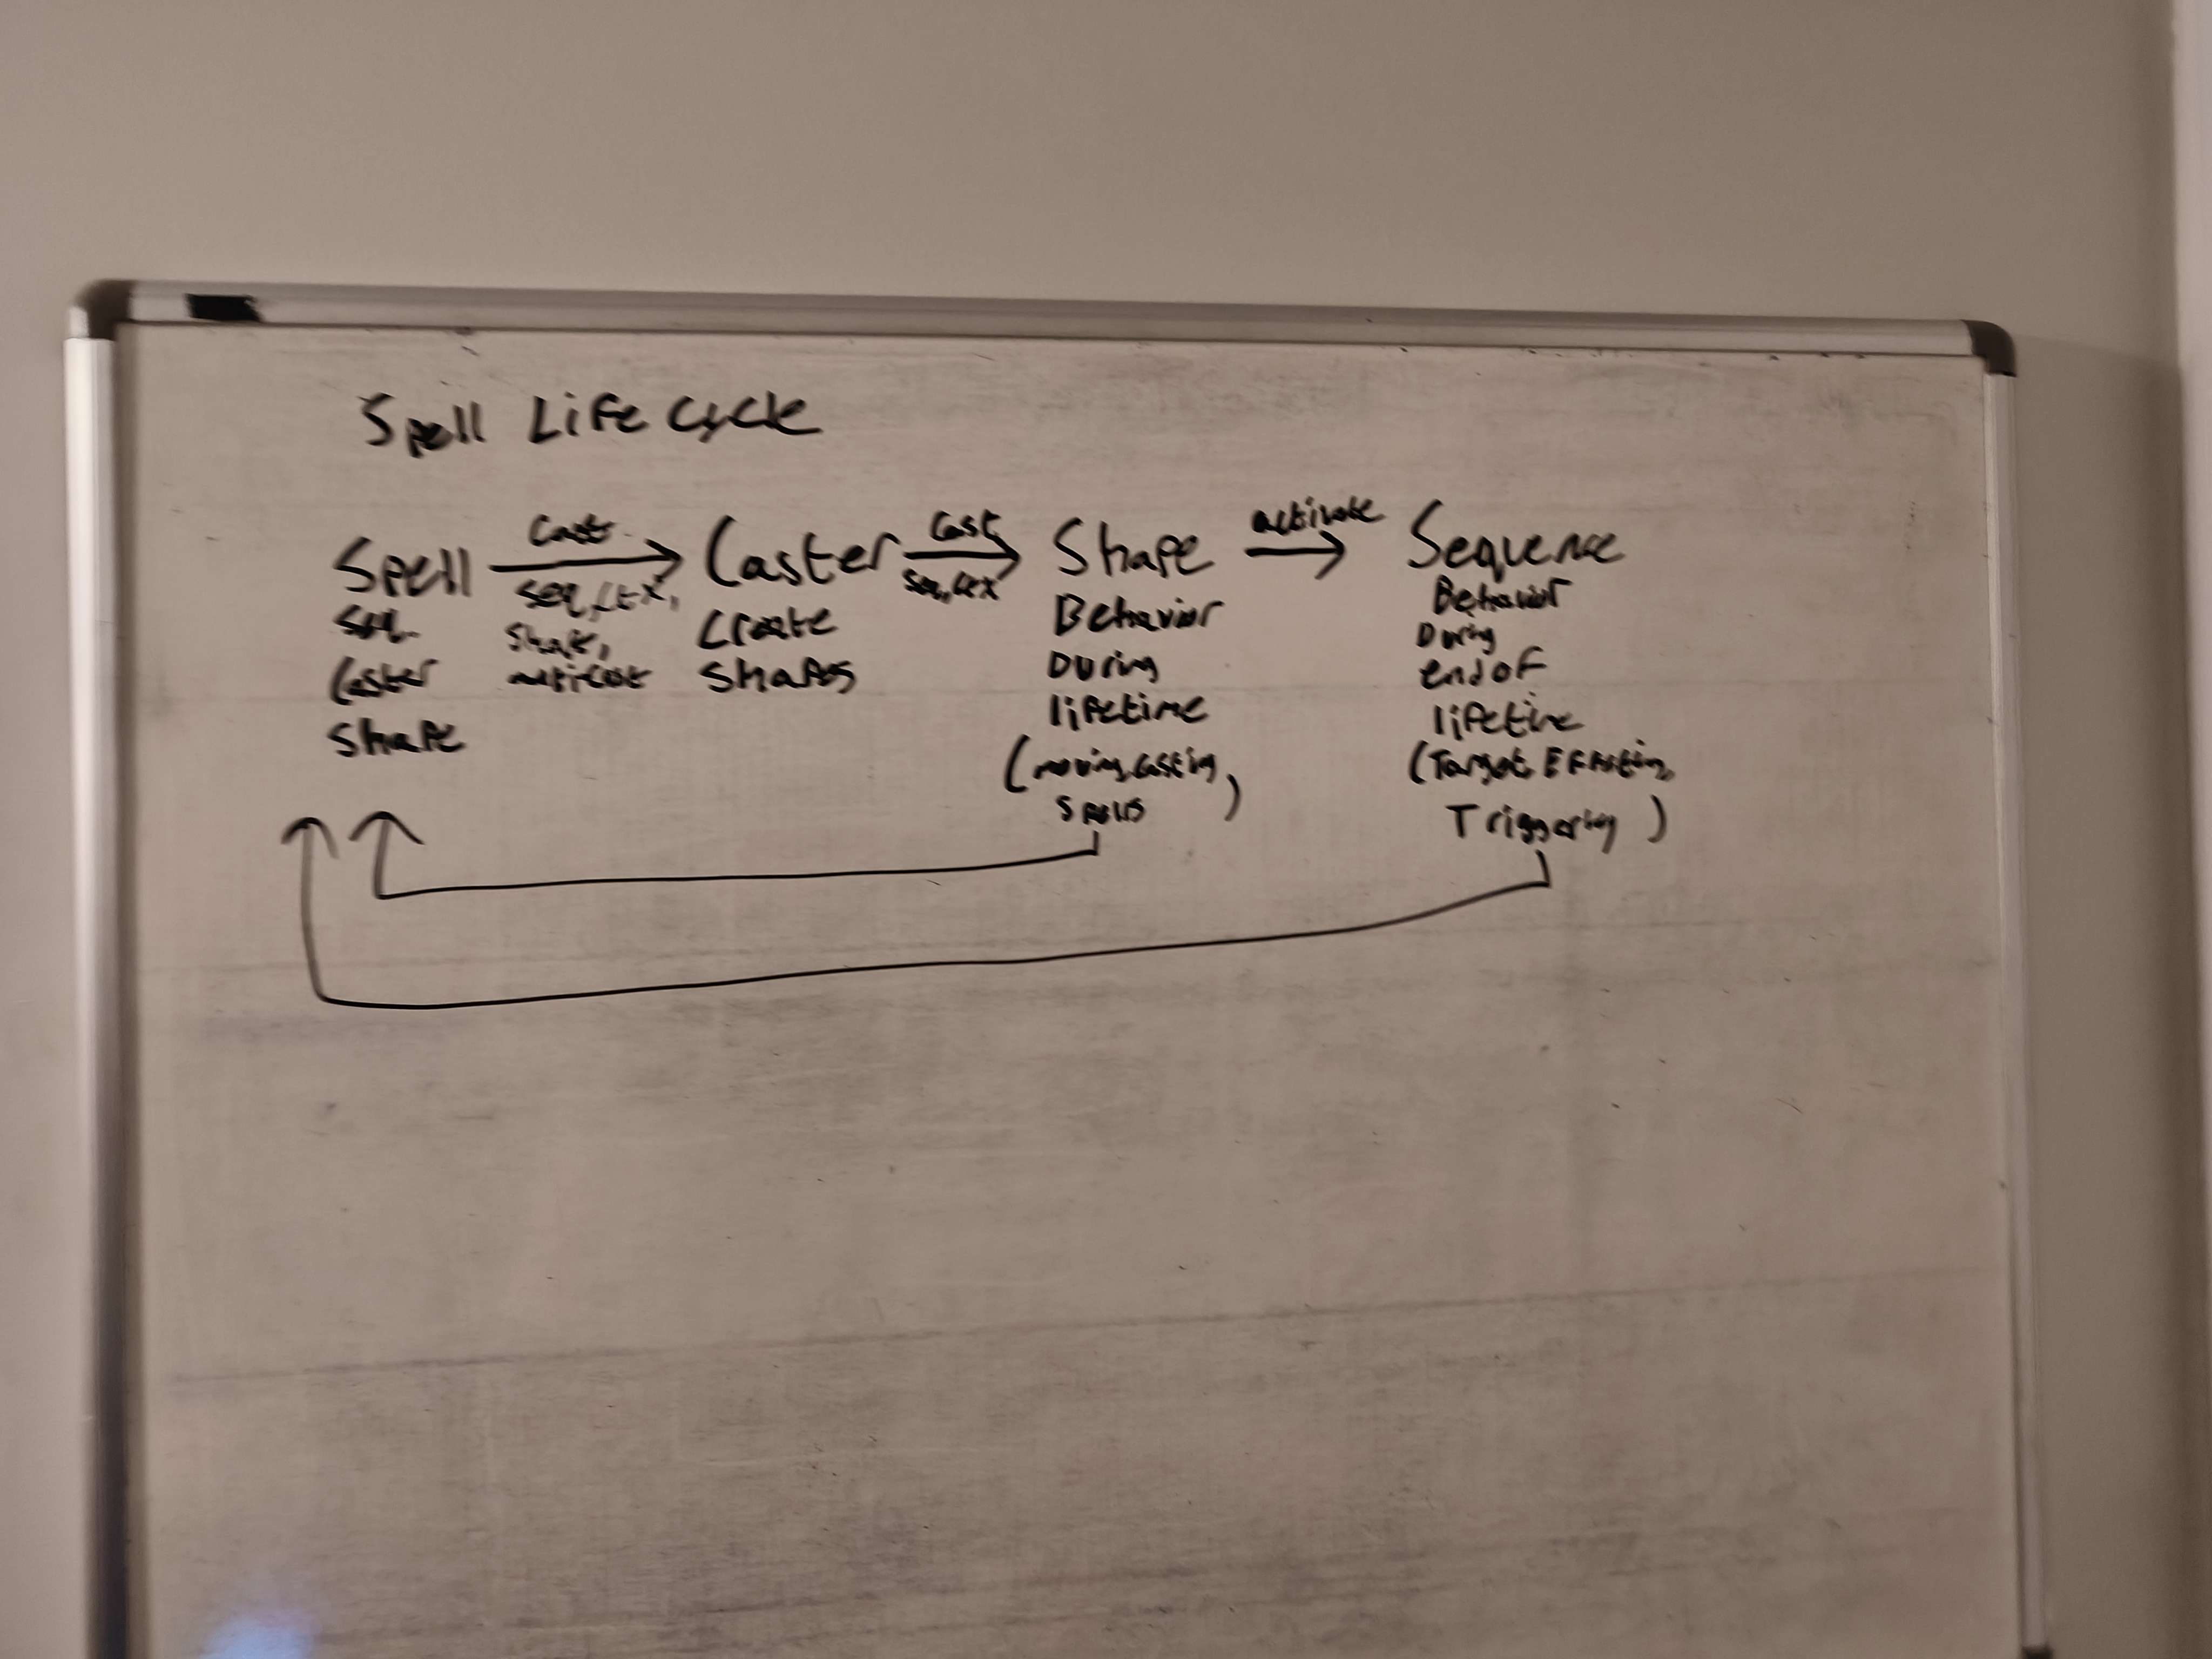 Spell Life cycle
Spell
Seq.
Caster
Shape
Cast
seq, ctx,
Shape,
multicast
Caster
Create
Shapes
Cast
Seq, ctx
Shape
Behavior
During
lifetime
(moving, casting,
spells)
activate
Sequence
Behavior
During
end of
lifetime
(Target, Effecting,
Triggering)